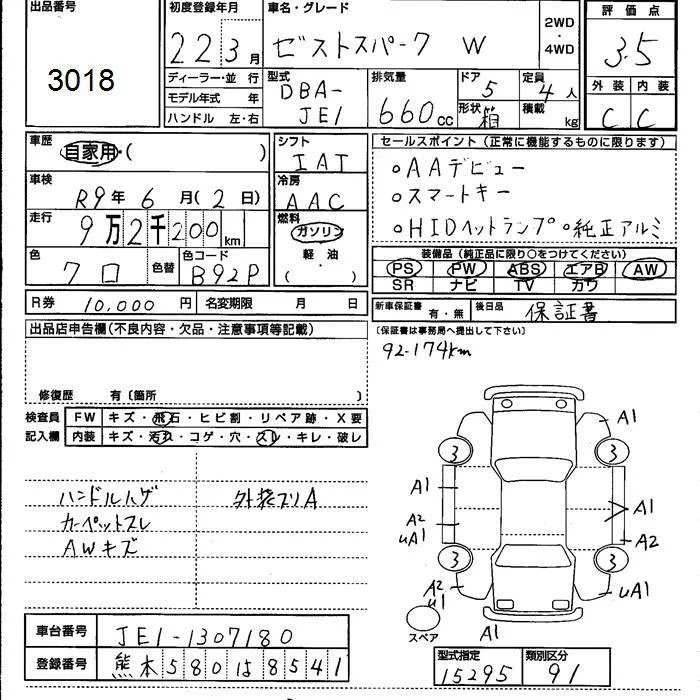 出品番号 3018
初度登録年月 22 3月
車名・グレード ゼストスパーク W
2WD・4WD
評価点 3.5
ディーラー・並行
モデル年式 年
ハンドル 左・右
型式 DBA-JE1
排気量 660cc
ドア 5
形状 箱
定員 4人
積載 kg
外装 C
内装 C
車歴 自家用・( )
車検 R9年6月(2日)
走行 9万2千200km
色 クロ 色替
色コード B92P
シフト IAT
冷房 AAC
燃料 ガソリン 軽・油 ( )
セールスポイント(正常に機能するものに限ります)
○AAデビュー
○スマートキー
○HIDヘットランプ ○純正アルミ
装備品(純正品に限り○をつけてください)
PS PW ABS エアB AW
SR ナビ TV カワ
R券 10,000円
名変期限 月 日
新車保証書 有・無
後日品 保証書
(保証書は事務局へ提出して下さい)
92-174km
出品店申告欄(不良内容・欠品・注意事項等記載)
修復歴 有〔箇所 〕
検査員記入欄
FW キズ・飛石・ヒビ割・リペア跡・X要
内装 キズ・汚れ・コゲ・穴・スレ・キレ・破レ
ハンドルハゲ 外装スリA
カーペットスレ
AWキズ
A1
3 3
A1 A1
A2 uA1 A2
3 3
A2 u1 uA1
スペア A1
車台番号 JE1-1307180
登録番号 熊本580は8541
型式指定 15295
類別区分 91